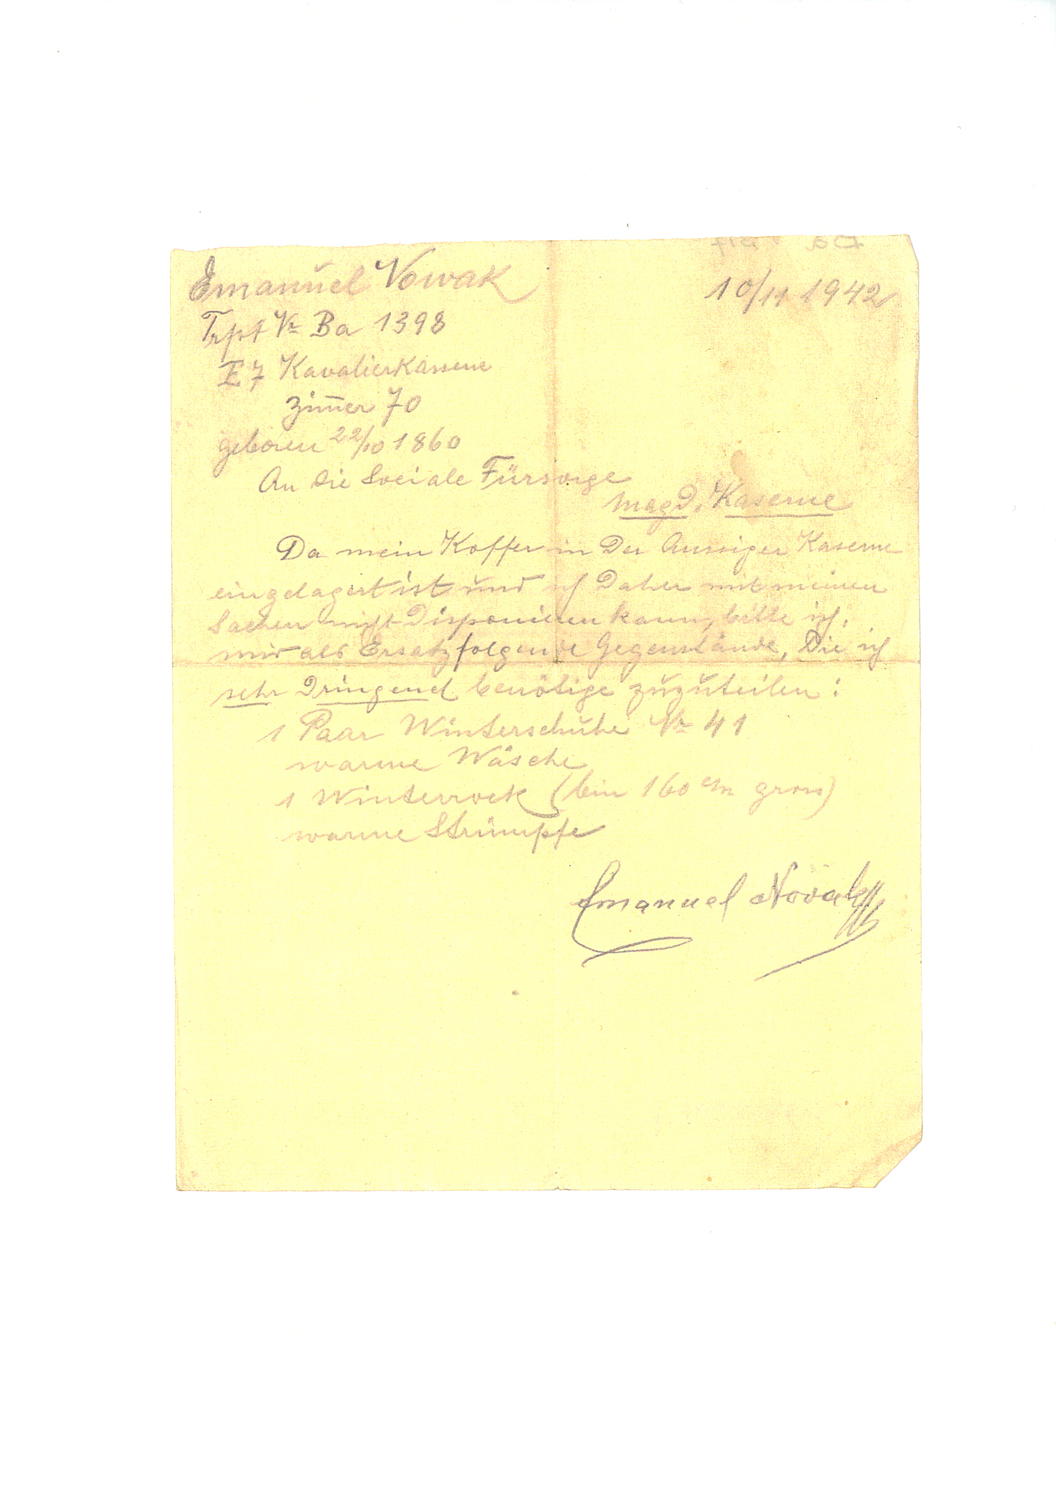 Emanuel Nowak
10/11 1942
Trpt Nr Ba 1398
E 7 Kavalierkaserne
Zim̄er 70
geboren 22/10 1860
An die Sociale Fürsorge
Magd. Kaserne
Da mein Koffer in der Aussiger Kaserne
eingelagert ist und ich daher mit meinen
Sachen nicht disponieren kann, bitte ich,
mir als Ersatz folgende Gegenstände, die ich
sehr dringend benötige zuzuteilen:
1 Paar Winterschuhe Nr 41
warme Wäsche
1 Winterrock (bin 160 cm gross)
warme Strümpfe
Emanuel Novak